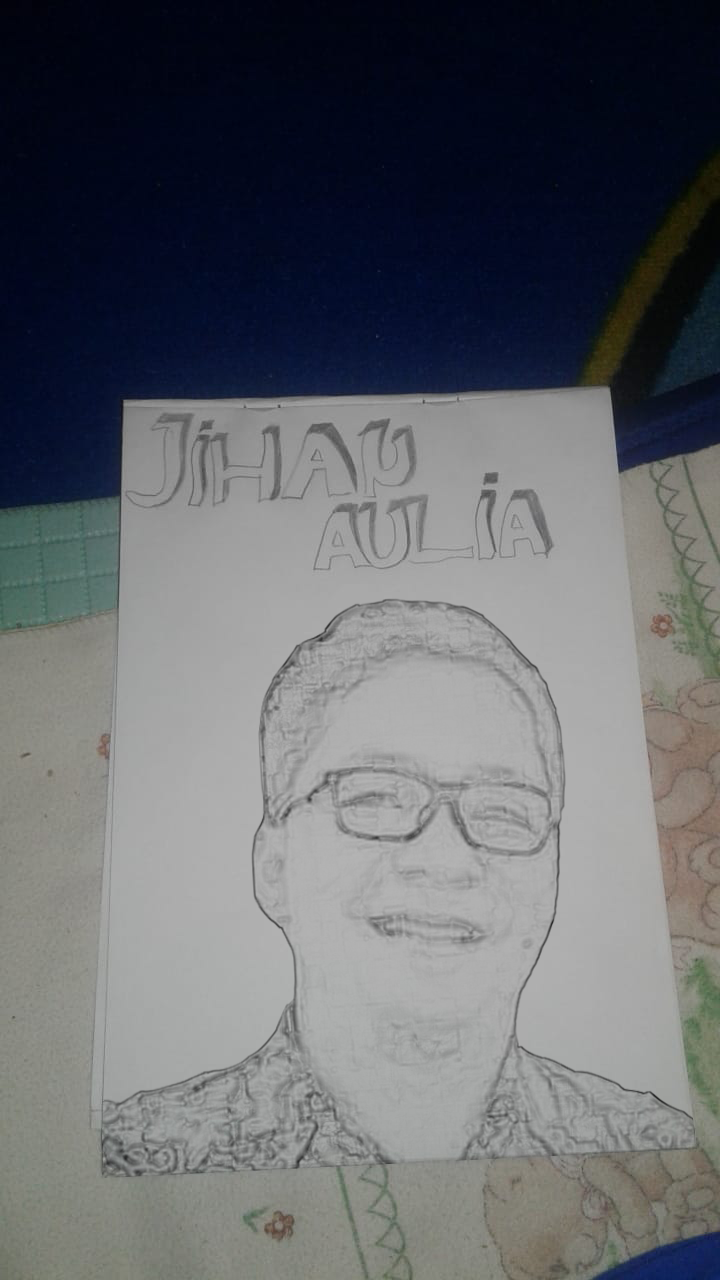 JiHAN
AULiA